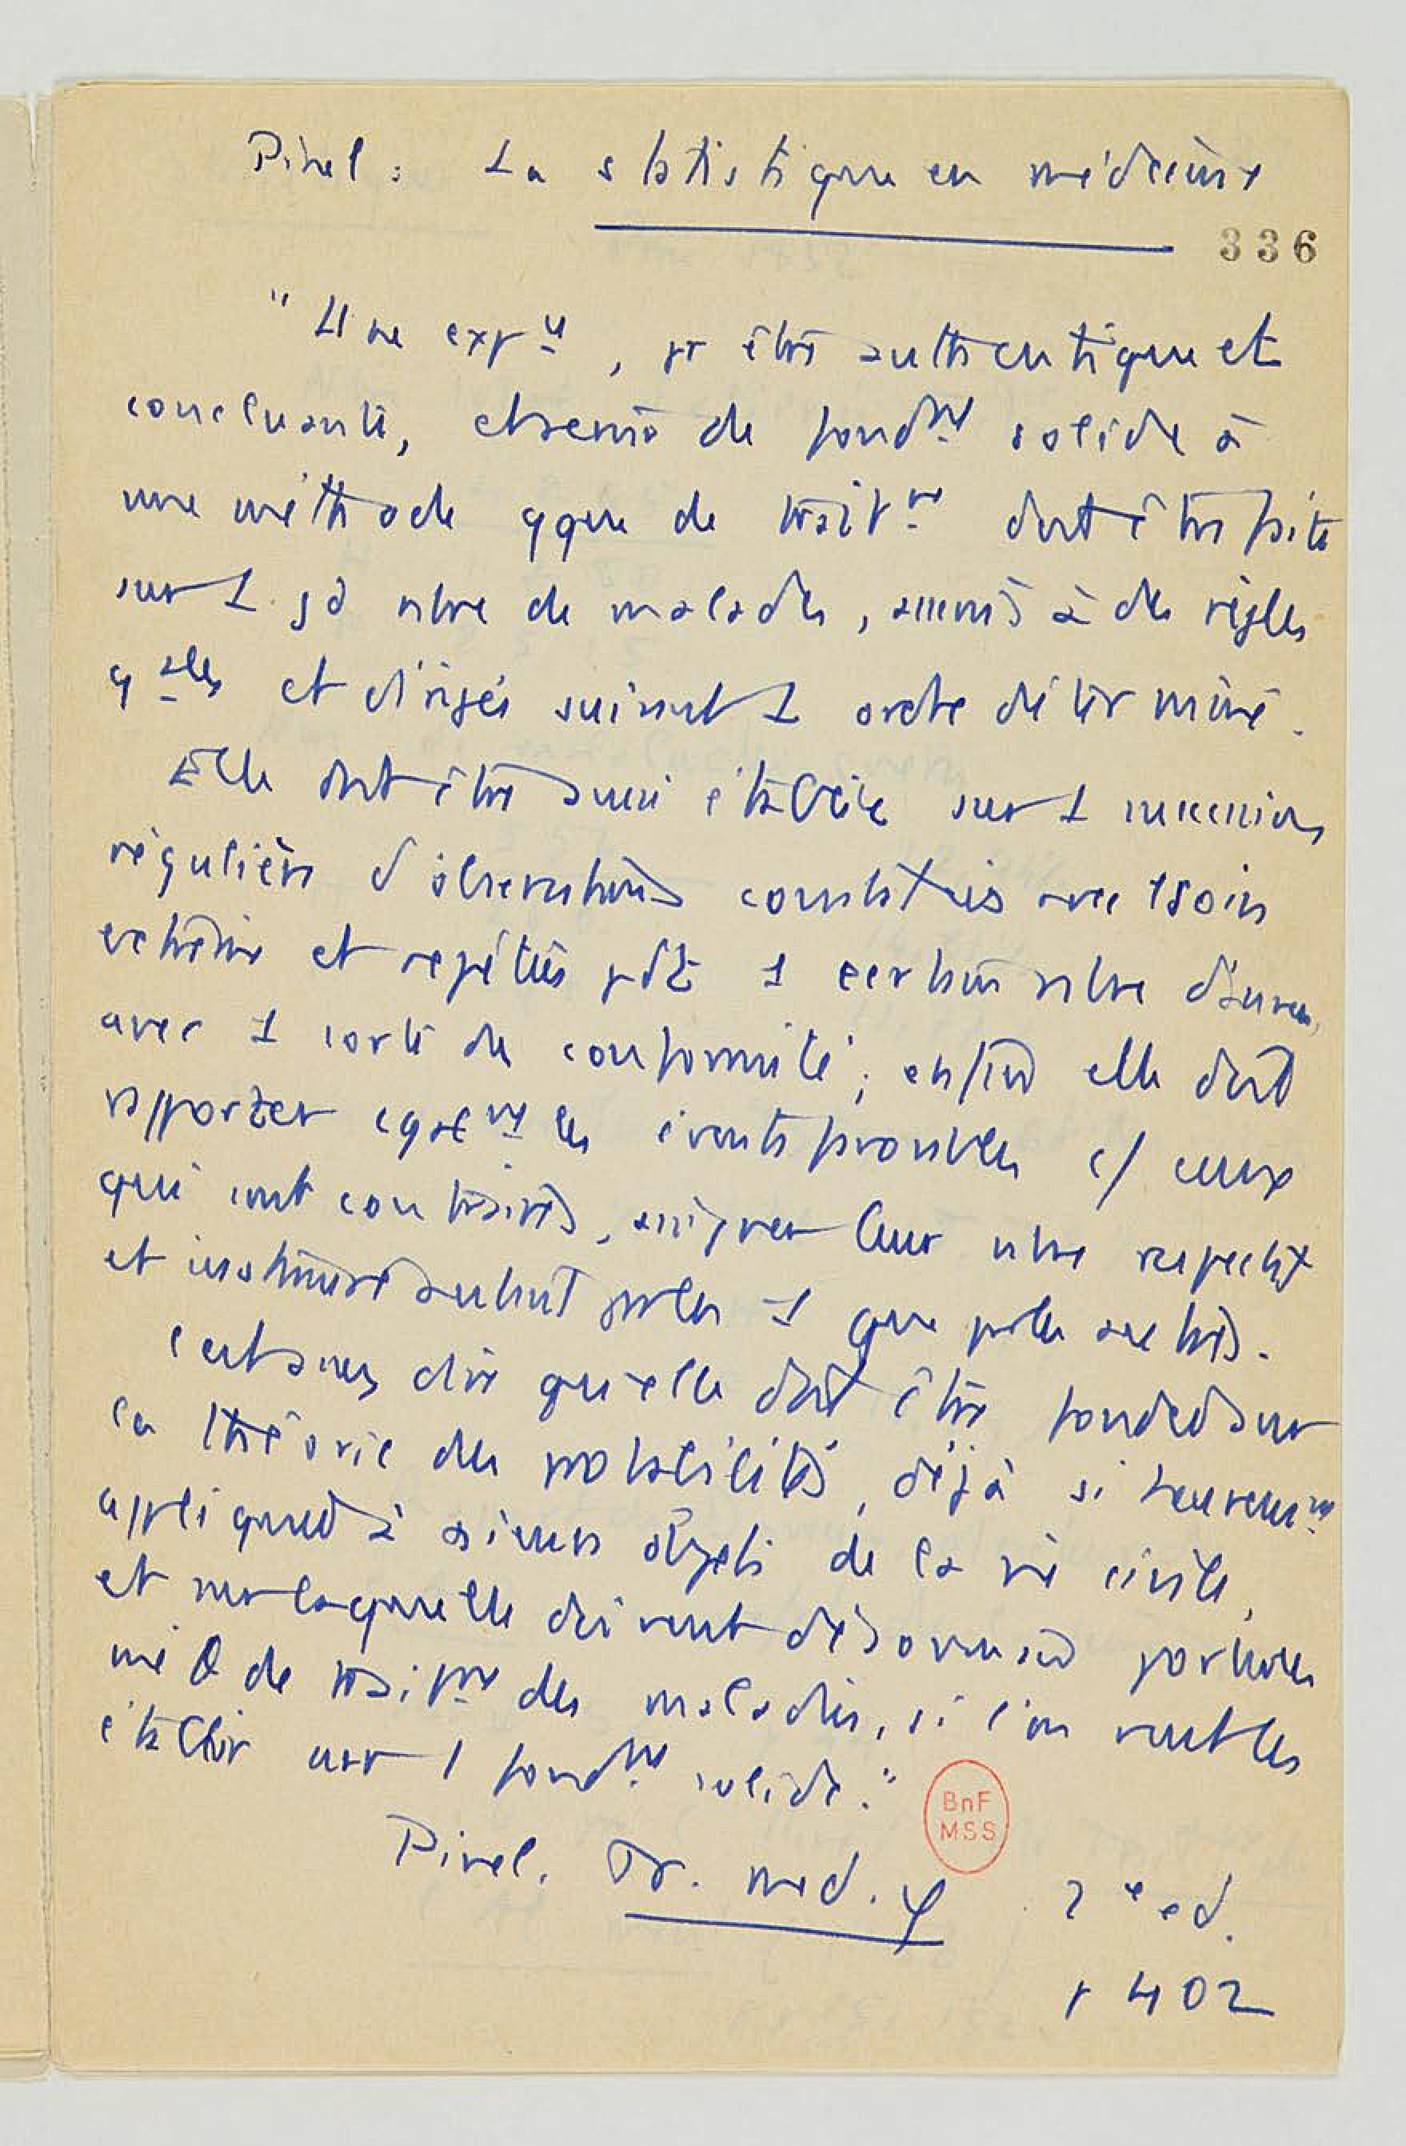 Pinel : La statistique en médecine
336
"Une exp^ce, pr être authentique et
concluante, et servir de fond^nt solide à
une méthode qque de trait^nt doit être faite
sur 1 gd nbre de malades, assujettis à des règles
g^ales et dirigés suivant 1 ordre déterminé.
Elle doit être aussi établie sur 1 succession
régulière d'observations constatées avec 1 soin
extrême et répétées pdt 1 certain nbre d'années
avec 1 sorte de conformité ; enfin elle doit
rapporter égale^nt les évents favorables c/ ceux
qui sont contraires, assigner leur nbre respectif
et instruire autant par les 1 que par les autres.
C'est assez dire qu'elle doit être fondée sur
la théorie des probabilités, déjà si heureuse^nt
appliquée à divers objets de la vie civile,
et sur laquelle doivent désormais porter les
méθ de trait^nt des maladies, si l'on veut les
établir sur 1 fond^nt solide."
BnF
MSS
Pinel. Tr. med. φ 2^e ed.
p 402